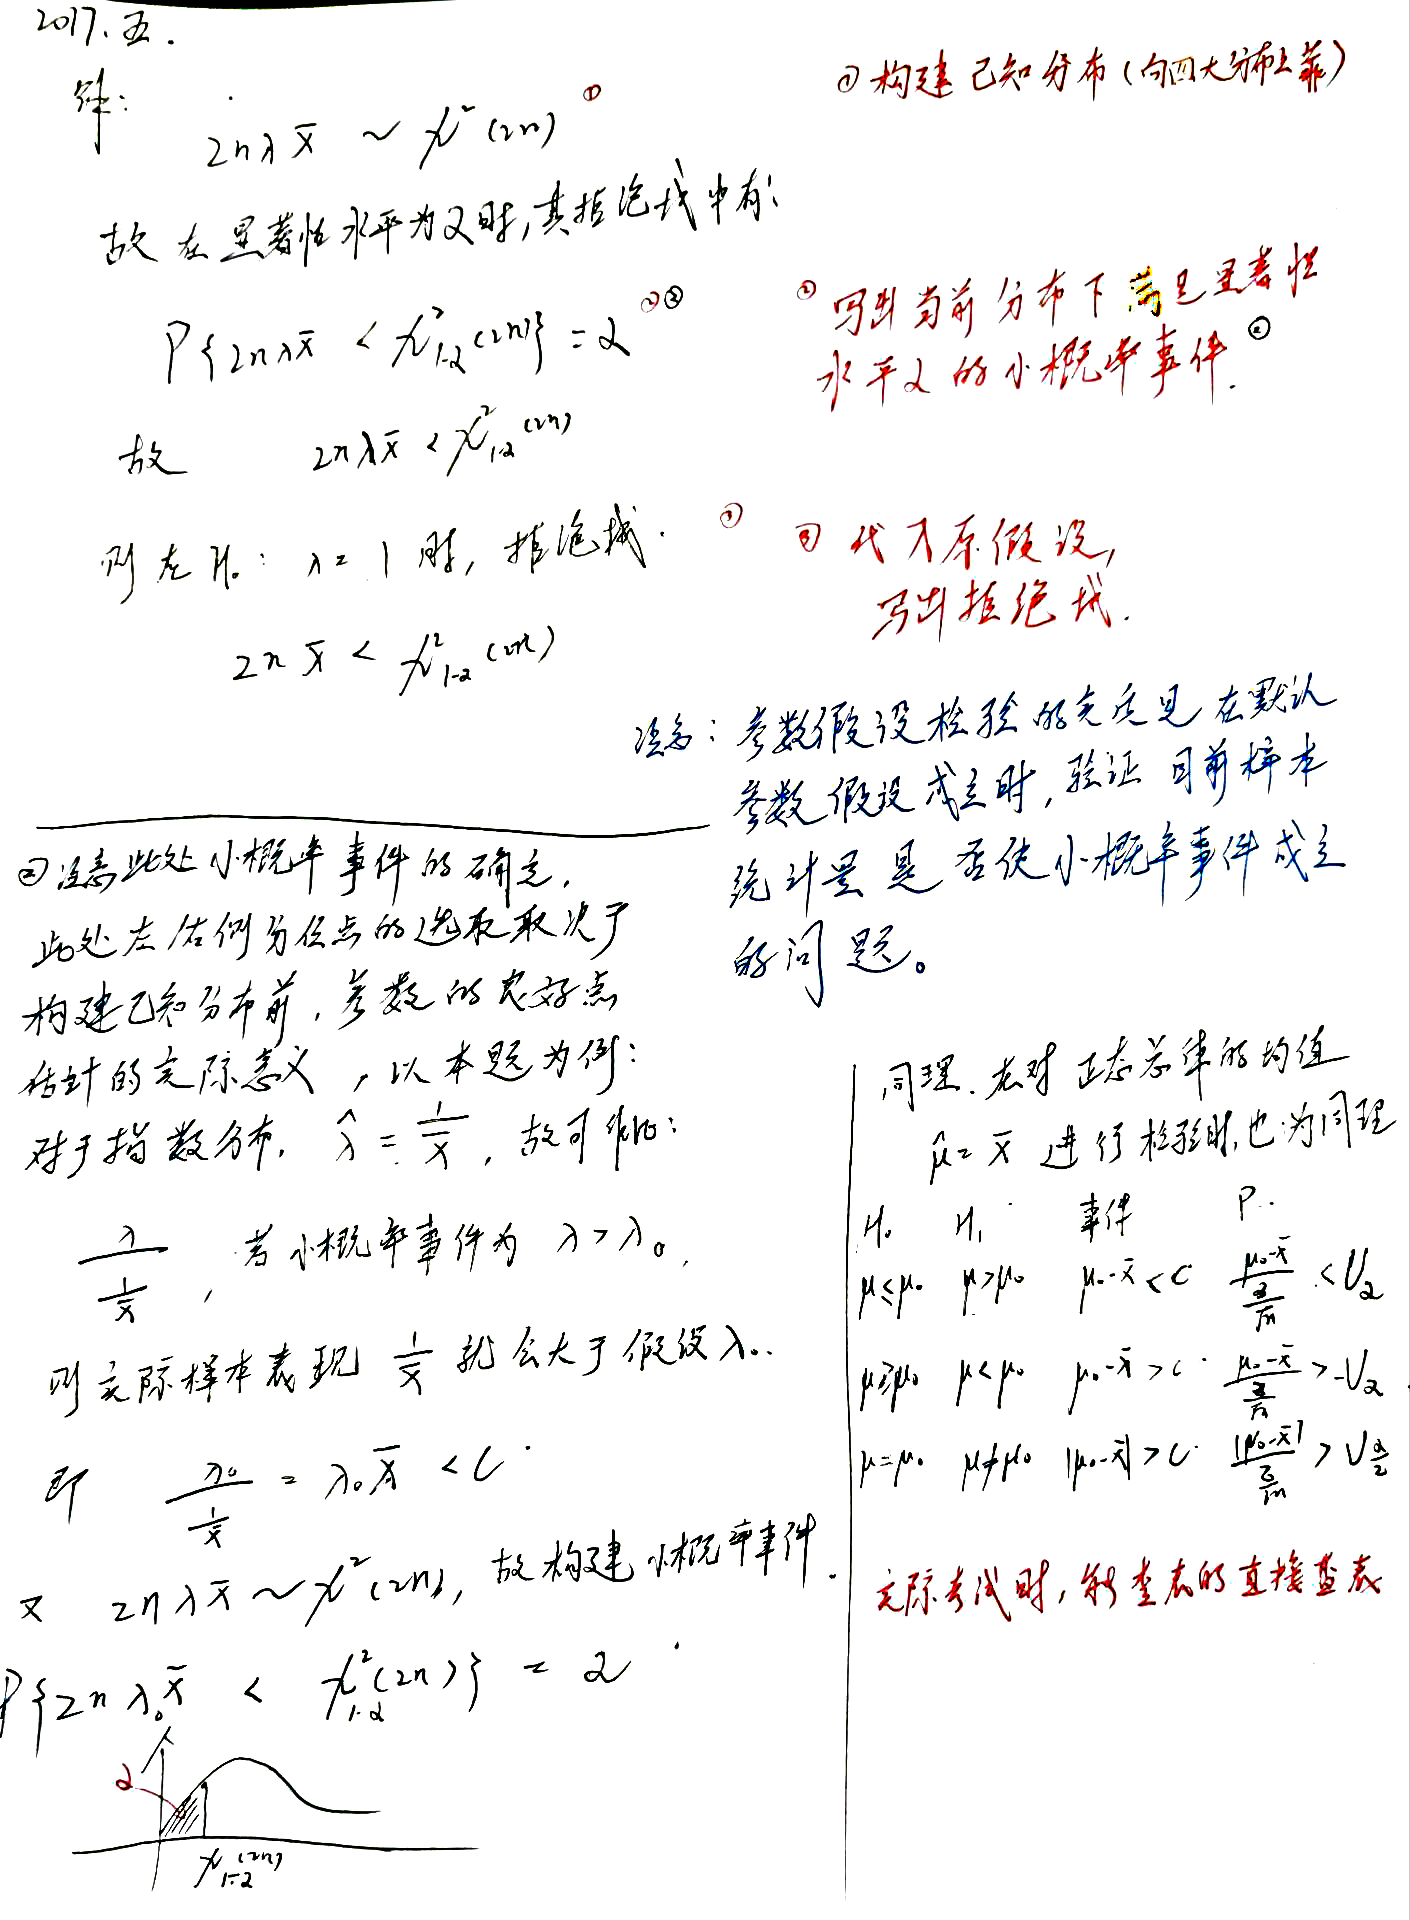 2017.五.
解:
2nλx̄ ~ χ²(2n) ①
① 构建已知分布(向四大分布上靠)
故在显著性水平为α时,其拒绝域中有:
P{2nλx̄ < χ²₁₋α(2n)} = α ②②
② 写出当前分布下满足显著性
水平α的小概率事件. ②
故 2nλx̄ < χ²₁₋α(2n)
则在H₀: λ=1时, 拒绝域. ③
③ 代入原假设,
写出拒绝域.
2nx̄ < χ²₁₋α(2n)
注意: 参数假设检验的实质是在默认
参数假设成立时, 验证目前样本
统计量是否使小概率事件成立
的问题。
② 注意此处小概率事件的确定,
此处左右侧分位点的选取取决于
构建已知分布前, 参数的良好点
估计的实际意义, 以本题为例:
对于指数分布, λ̂ = 1/x̄, 故可作比:
λ/(1/x̄), 若小概率事件为 λ>λ₀,
则实际样本表现 1/x̄ 就会大于假设λ₀.
即 λ₀/(1/x̄) = λ₀x̄ < C.
又 2nλx̄ ~ χ²(2n), 故构建小概率事件.
P{2nλ₀x̄ < χ²₁₋α(2n)} = α.
α
χ²₁₋α(2n)
同理. 在对正态总体的均值
μ̂ = x̄ 进行检验时, 也为同理
H₀ H₁ 事件 P..
μ≤μ₀ μ>μ₀ μ₀-x̄<C (μ₀-x̄)/(σ/√n) < Uα
μ≥μ₀ μ<μ₀ μ₀-x̄>C (μ₀-x̄)/(σ/√n) > -Uα
μ=μ₀ μ≠μ₀ |μ₀-x̄|>C |μ₀-x̄|/(σ/√n) > U α/2
实际考试时, 能查表的直接查表